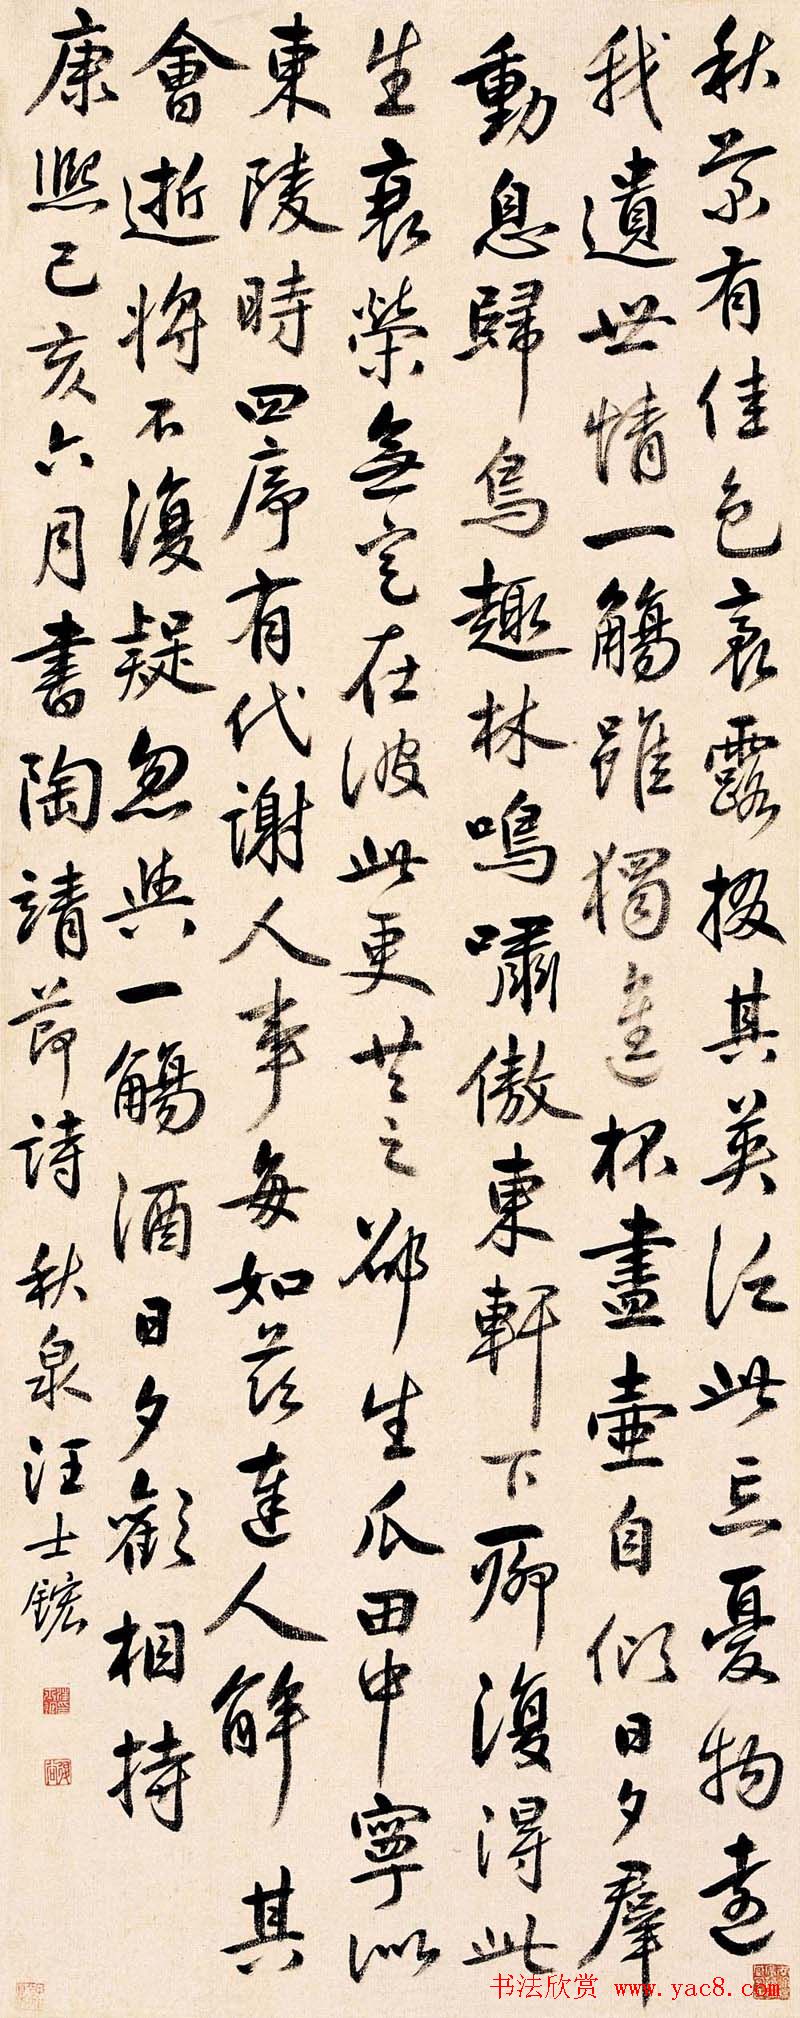 秋菊有佳色裛露掇其英泛此忘憂物遠
我遺世情一觴雖獨進杯盡壺自傾日夕羣
動息歸鳥趣林鳴嘯傲東軒下聊復得此
生衰榮無定在彼此更共之邵生瓜田中寧似
東陵時四序有代謝人事每如茲達人解其
會逝將不復疑忽與一觴酒日夕歡相持
康熙己亥六月書陶靖節詩 秋泉汪士鋐
书法欣赏 www.yac8.com